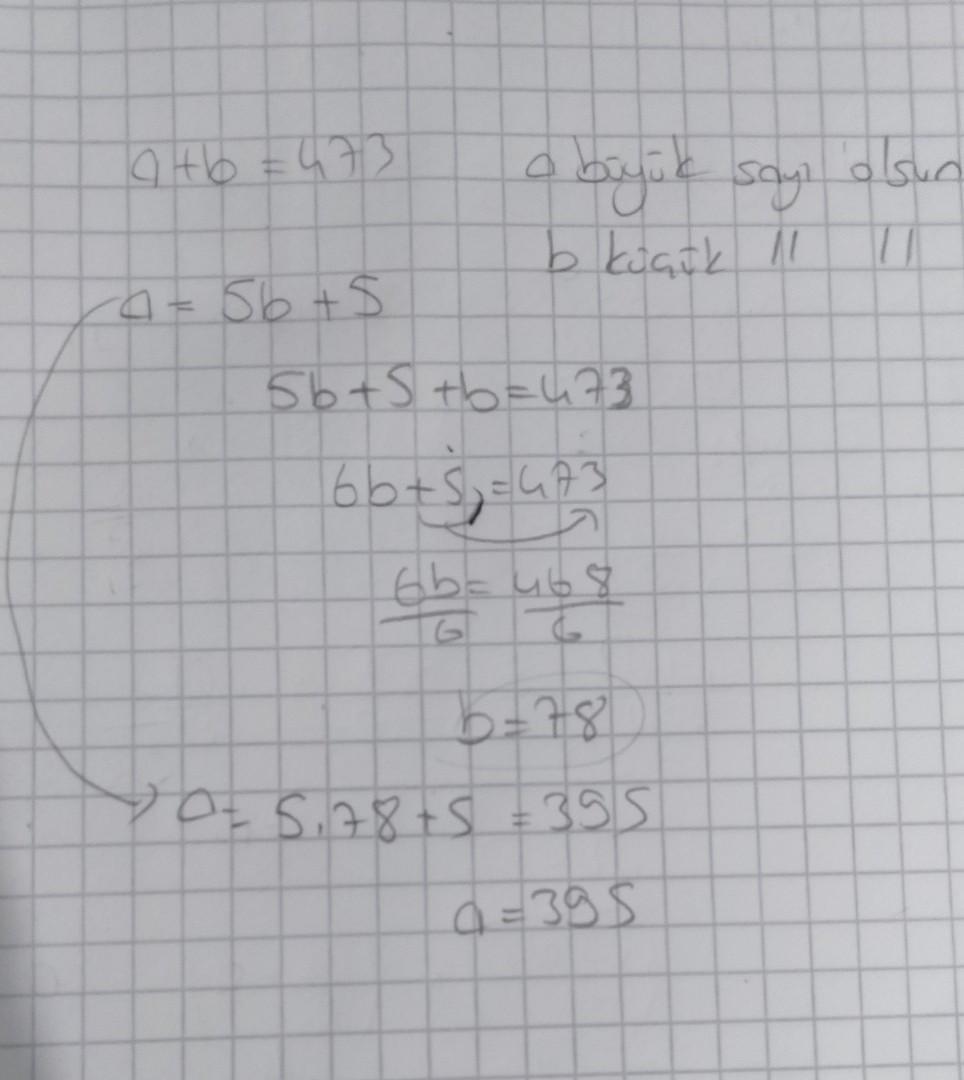 a+b = 473
a büyük sayı olsun
b küçük " "
a = 5b + 5
5b + 5 + b = 473
6b + 5 = 473
6b = 468
6 6
b = 78
a = 5.78 + 5 = 395
a = 395